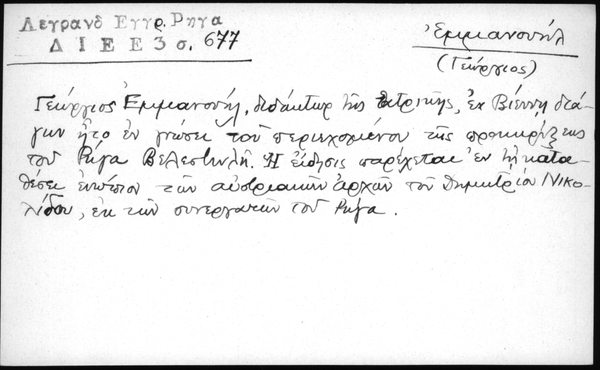 Λεγρανδ Εγγρ. Ρηγα
ΔΙΕΕ 3 σ. 677
Ἐμμανουὴλ
(Γεώργιος)
Γεώργιος Ἐμμανουήλ, διδάκτωρ τῆς ἰατρικῆς, ἐν Βιέννῃ διά-
γων ἦτο ἐν γνώσει τοῦ περιεχομένου τῆς προκηρύξεως
τοῦ Ρήγα Βελεστινλῆ. Ἡ εἴδησις παρέχεται ἐν τῇ κατα-
θέσει ἐνώπιον τῶν αὐστριακῶν ἀρχῶν τοῦ Δημητρίου Νικο-
λίδου, ἐκ τῶν συνεργατῶν τοῦ Ρήγα.